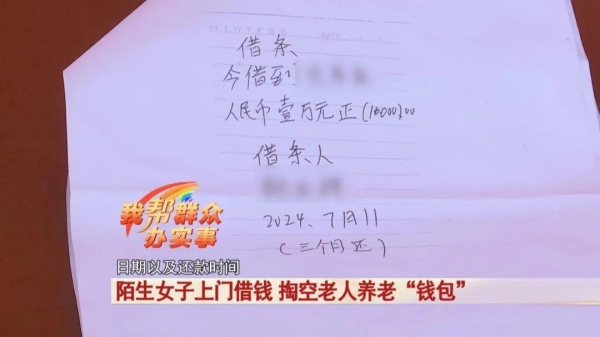 M T W T F S S DATE
借条
今借到
人民币壹万元正(10000.00
借条人
2024.7月11
(三个月还)
我帮群众
办实事
日期以及还款时间
陌生女子上门借钱 掏空老人养老“钱包”